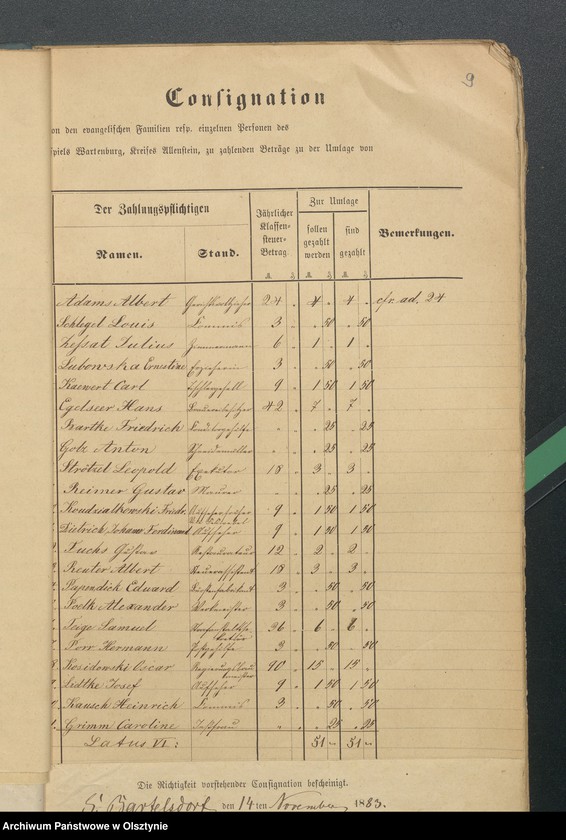 9
Consignation
on den evangelischen Familien resp. einzelnen Personen des
spiels Wartenburg, Kreises Allenstein, zu zahlenden Beträge zu der Umlage von
Der Zahlungspflichtigen
Namen.
Stand.
Jährlicher Klassen-steuer-Betrag
Zur Umlage
sollen gezahlt werden
sind gezahlt
Bemerkungen.
Adams Albert 24 . 4 . 4 . cfr. ad. 24
Schlegel Louis Commis 3 . . 50 . 50
Julius Zimmermann 6 . 1 . 1 .
Ernestine Erzieherin 3 . . 50 . 50
Kaewert Carl Tischlergesell 9 . 1 50 1 50
Egelseer Hans 42 . 7 . 7 .
Barthe Friedrich . . . 25 . 25
Golz Anton . . . 25 . 25
Strötzel Leopold Exekutor 18 . 3 . 3 .
Reimer Gustav Maurer . . 25 . 25
Kondziatkowski Friedr. 9 . 1 50 1 50
Dietrich Johann Ferdinand Aufseher 9 . 1 50 1 50
Fuchs Gustav Restaurateur 12 . 2 . 2 .
Reuter Albert 18 . 3 . 3 .
Papendick Eduard 3 . . 50 . 50
Alexander Werkmeister 3 . . 50 . 50
Samuel 36 . 6 . 6 .
Porr Hermann 3 . . 50 . 50
Oscar 90 . 15 . 15 .
Lidtke Josef Aufseher 9 . 1 50 1 50
Kausch Heinrich Commis 3 . . 50 . 50
Grimm Caroline . . . 25 . 25
Latus VI: 51 51
Die Richtigkeit vorstehender Consignation bescheinigt.
Bartelsdorf den 14ten November 1883.
Archiwum Państwowe w Olsztynie